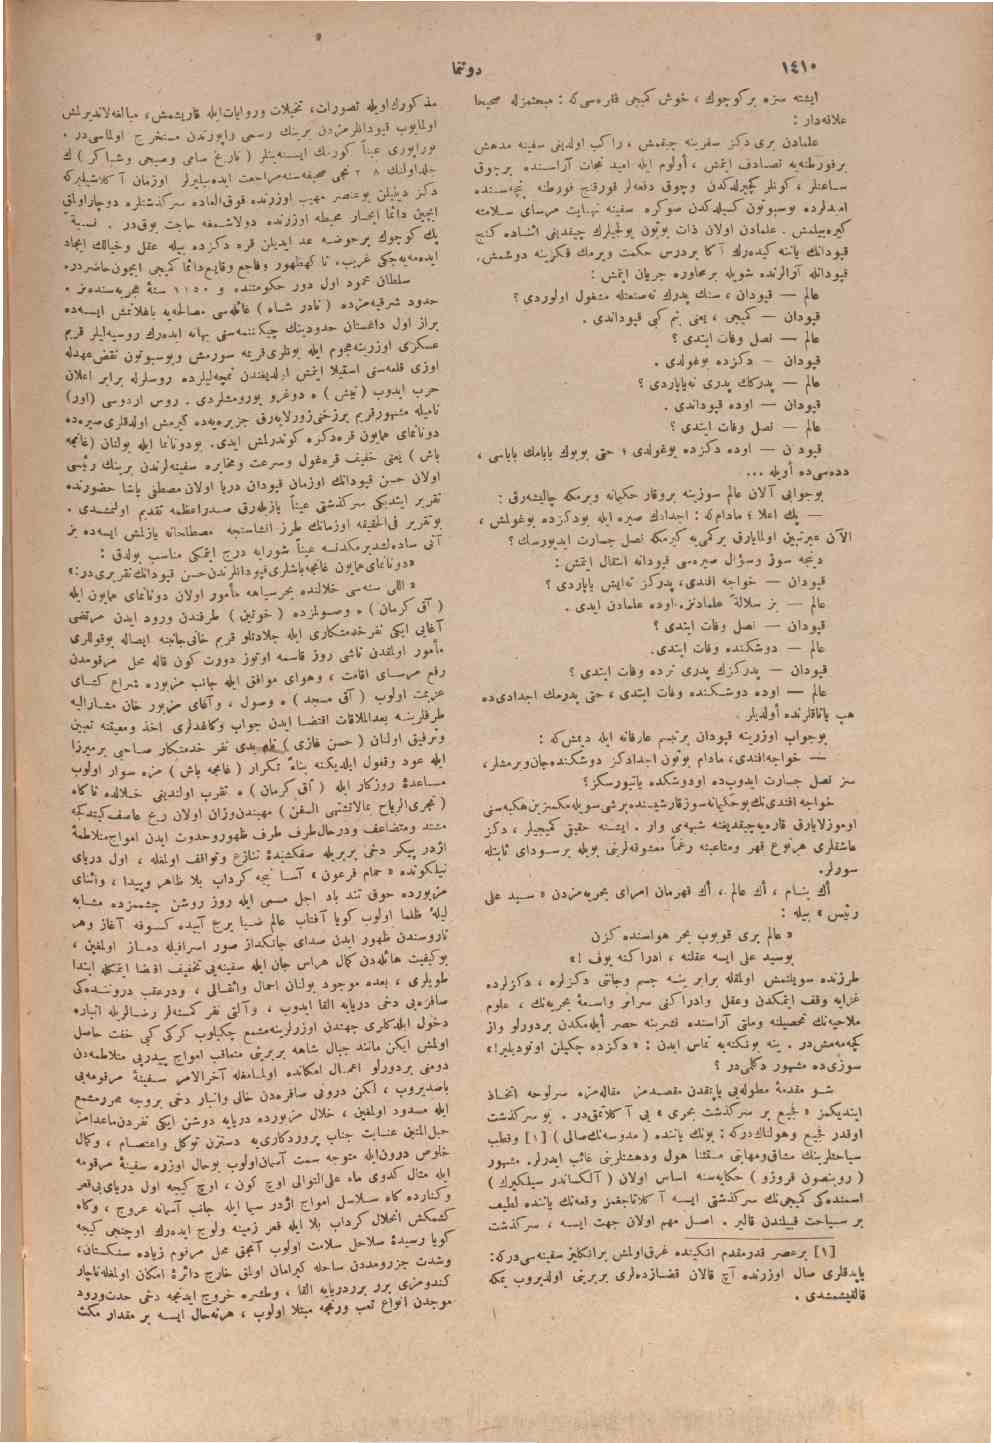 ١٤١٠
دوننما
ایشته سزه بر كوچوك ، خوش كمیجی فقره‌سی كه : مبحثمزله صحیحا
علاقه‌دار :
علمادن بری دكز سفرینه چیقمش ، راكب اولدیغی سفینه مدهش
برفورطنه‌یه تصادف ایتمش ، أولوم ایله امید نجات آراسنده برچوق
ساعتلر ، كونلر كچیرلدكدن وچوق دفعه‌لر قورقنج فورطنه پنچه‌سنده
امیدلرده بوسبوتون كسیلدكدن صوكره سفینه نهایت مرسای سلامته
كیره‌بیلمش . علمادن اولان ذات بوتون یولجیلرك چیقدیغی اثناده كنج
قپودانك یاننه كیده‌رك آكا بردرس حكمت ویرمك فكرینه دوشمش.
قپودانله آرالرنده شویله برمحاوره جریان ایتمش :
عالم — قپودان ، سنك پدرك نه‌صنعتله مشغول اولوردی ؟
قپودان — كمیجی ، یعنی بنم كبی قپوداندی .
عالم — نصل وفات ایتدی ؟
قپودان – دكزده بوغولدی .
عالم — پدركك پدری نه‌یاپاردی ؟
قپودان — اوده قپوداندی .
عالم — نصل وفات ایتدی ؟
قپودان — اوده دكزده بوغولدی ؛ حتی بویوك بابامك باباسی ،
دده‌سی‌ده أویله ...
بوجوابی آلان عالم سوزینه بروقار حكیمانه ویرمكه چالیشه‌رق :
— پك اعلا ؛ مادام‌كه : اجدادك صیره ایله بودكزده بوغولمش ،
الآن عبرتبین اولمایارق بركمی‌یه كیرمكه نصل جسارت ایدیورسك ؟
دینجه سوق وسؤال صیره‌سی قپودانه انتقال ایتمش :
قپودان — خواجه افندی، پدركز نه‌ایش یاپاردی ؟
عالم — بز سلالةً علمادنز. اوده علمادن ایدی .
قپودان — نصل وفات ایتدی ؟
عالم — دوشكنده وفات ایتدی.
قپودان — پدركزك پدری نرده وفات ایتدی ؟
عالم — اوده دوشكنده وفات ایتدی ، حتی پدرمك اجدادی‌ده
هپ یاتاقلرنده أولدیلر .
بوجواب اوزرینه قپودان برتبسم عارفانه ایله دیمش‌كه :
— خواجه‌افندی، مادام بوتون اجدادكز دوشكنده‌جان‌ویرمشلر ،
سز نصل جسارت ایدوب‌ده اودوشكده یاتیورسكز؟
خواجه افندی‌نك بوحكیمانه‌سوزقارشیسنده‌برشی سویله‌مكسزین هكبه‌سنی
اوموزلایارق قاره‌یه‌چیقدیغنه شبهه‌می وار . ایشته حقیقی كمیجیلر ، دكز
عاشقلری هرنوع قهر ومتاعبنه رغماً معشوقه‌لرینی بویله برسودای ثابتله
سورلر.
أك بنام ، أك عالم ، أك قهرمان امرای بحریه‌مزدن « سید علی
رئیس » بیله :
« عالم بری قویوب بحر هواسنده كزن
بوسید علی ایسه عقلنه ، ادراكنه یوف !»
طرزنده سویلنمش اولمقله برابر ینه جسم وجانی دكزلره ، دكزلرده
غزایه وقف ایتمكدن وعقل وادراكنی سرائر واسعهٔ بحریه‌نك ، علوم
ملاحیه‌نك تحصیلنه وملتی آراسنده نشرینه حصر أیله‌مكدن بردورلو واز
كچه‌مه‌مش‌در . ینه بونكته‌یه تماس ایدن : « دكزده چكیلن اوتودیلیر!»
سوزی‌ده مشهور دكلمی‌در ؟
شو مقدمهٔ مطوله‌یی یاپتقدن مقصدمز مقاله‌مزه سرلوحه اتخاذ
ایتدیكمز « فجیع بر سركذشت بحری » یی آكلاتمق‌در . بو سركذشت
اوقدر فجیع وهولناك‌دركه : بونك یاننده ( مدوسه‌نك‌صالی ) [١] وقطب
سیاحتلرینك مشاق‌ومهابتی مستثنا هول ودهشتلرینی غائب ایدرلر. مشهور
( روبنصون قروزو ) حكایه‌سنه اساس اولان ( آلكساندر سیلكیرك )
اسمنده‌كی كمیجی‌نك سركذشتی ایسه آكلاتاجغمز وقعه‌نك یاننده لطیف
بر سیاحت قبیلندن قالیر . اصل مهم اولان جهت ایسه ، سركذشت
[١] برعصر قدرمقدم انكینده غرق‌اولمش برانكلیز سفینه‌سی‌دركه:
یاپدقلری صال اوزرنده آچ قالان قضازده‌لری بربرینی اولدیروب یمكه
قالقیشمشدی .
مذكورك‌اویله تصورات، تخیلات وروایات‌ایله قاریشمش، مبالغه‌لاندیرلمش
اولمایوب قپودانلرمزدن برینك رسمی راپورندن مستخرج اولماسی‌در .
بوراپوری عیناً كورمك ایسته‌ینلر ( تاریخ سامی وصبحی وشاكر ) ك
دكز دینیلن بوعنصر مهیب اوزرنده فوق‌العاده سركذشتلره دوچاراولمق
ایچین دائما ابحار محیطه اوزرنده دولاشمغه حاجت یوقدر . نسبةً
پك كوچوك برحوضه عد ایدیلن قره دكزده بیله عقل وخیالك ایجاد
سلطان محمود اول دور حكومتنده و ١١٥٠ سنهٔ هجریه‌سنده‌یز .
حدود شرقیه‌مزده ( نادر شاه ) غائله‌سی مصالحه‌یه باغلانمش ایسه‌ده
براز اول داغستان حدودینك چیكننمه‌سنی بهانه ایده‌رك روسیه‌لیلر قریم
عسكری اوزرینه‌هجوم ایله بونلری‌قریمه سورمش وبوسبوتون نقض‌عهدله
اوزی قلعه‌سنی استیلا ایتمش اولدیغندن نمچه‌لیلرده روسلرله برابر اعلان
حرب ایدوب ( نیش ) ه دوغرو یورومشلردی . روس اردوسی (اور)
دونانمای همایون قره‌دكزه كوندرلمش ایدی. بودونانما ایله بولنان (غانجه
باش ) یعنی خفیف قره‌غول وسرعت ومخابره سفینه‌لرندن برینك رئیسی
اولان حسن قپودانك اوزمان قپودان دریا اولان مصطفی پاشا حضورنده
تقریر ایتدیكی سركذشتی عیناً یازیله‌رق صدراعظمه تقدیم اولنمشدی .
بوتقریر فی‌الحقیقه اوزمانك طرز انشاسنجه مصطلحانه یازلمش ایسه‌ده بز
آنی ساده‌لشدیرمكدنسه عیناً شورایه درج ایتمكی مناسب بولدق :
«دونانمای‌همایون غانجه‌باشلری‌قپودانلرندن‌حسن قپودانك‌تقریری‌در:»
« اللی سنه‌سی خلالنده بحرسیاهه مأمور اولان دونانمای همایون ایله
( آق كرمان ) ه وصولمزده ( خوتین ) طرفندن ورود ایدن مرتضی
آغایی ایكی نفرخدمتكاری ایله جلادتلو قریم خانی‌جانبنه ایصاله بوقوللری
مأمور اولمغدن ناشی روز قاسمه اوتوز دورت كون قاله محل مرقومدن
رفع مرسای اقامت ، وهوای موافق ایله جانب مزبوره شراع كشای
عزیمت اولوب ( آق مسجد ) ه وصول ، وآغای مزبور خان مشارالیه
طرفلرینه بعدالملاقات اقتضا ایدن جواب وكاغدلری اخذ ومعیتنه تعیین
ایله عود وقفول ایلدیكنه بناءً تكرار ( غانجه باش ) مزه سوار اولوب
مساعدهٔ روزكار ایله ( آق كرمان ) ه تقرب اولندیغی خلالده ناكاه
(تجری‌الریاح بمالاتشتهی السفن ) مهیندن‌وزان اولان ریح عاصف‌كیتدكجه
مشتد ومتضاعف ودرحال‌طرف طرف ظهوروحدوت ایدن امواج‌متلاطمهٔ
اژدر پیكر دخی بربریله صفكشیدهٔ تنازع وتوافق اولمغله ، اول دریای
نیلكونده « حمام فرعون » آسا نیجه كرداب بلا ظاهر وپیدا ، واثنای
لیلهٔ ظلما اولوب كویا آفتاب عالم ضیا برج آبیده كسوفه آغاز وهر
تاروسندن ظهور ایدن صدای جانكداز صور اسرافیله دمساز اولمغین ،
بوكیفیت هائله‌دن كمال هراس جان ایله سفینه‌یی تخفیف اقتضا ایتمكله ابتدا
طوپلری ، بعده موجود بولنان احمال واثقالی ، ودرعقب دروننده‌كی
دخول ایلدكلری جهتدن اوزرلرینه‌مشمع چكیلوب كركی كبی خفت حاصل
اولمش ایكن مانند جبال شاهقه بربرینی متعاقب امواج پیدرپی متلاطمه‌دن
دومنی بردورلو اعمال امكانده اولمامغله آخرالامر سفینهٔ مرقومه‌یی
باصدیروب ، لكن درونی صافره‌دن خالی وانبار دخی بروجه محررمشمع
ایله مسدود اولمغین ، خلال مزبورده دریایه دوشن ایكی نفردن‌ماعدامز
حبل‌المتین عنایت جناب پروردكاری‌یه دستزن توكل واعتصام ، وكمال
خلوص درون‌ایله متوجه سمت آسمان‌اولوب بوحال اوزره سفینهٔ مرقومه
ایله مثال كدوی ماء علی‌التوالی اوچ كون ، اوچ كیجه اول دریای‌بی‌قعر
وكنارده كاه سلاسل امواج اژدر سیما ایله جانب آسمانه عروج ، وكاه
كشمكش انحلال كرداب بلا ایله قعر زمینه ولوج ایده‌رك اوچنجی كیجه
كویا رسیدهٔ ساحل سلامت اولوب آنجق محل مرقوم زیاده سنكستان،
وشدت جزرومددن ساحله كیرامان اولمق خارج دائرهٔ امكان اولمغله‌ناچار
كندومزی برر برردریایه القا ، وطشره خروج ایدنجه دخی حدت‌ورود
موجدن انواع تعب ورنجه مبتلا اولوب ، هرنه‌حال ایسه بر مقدار مكث